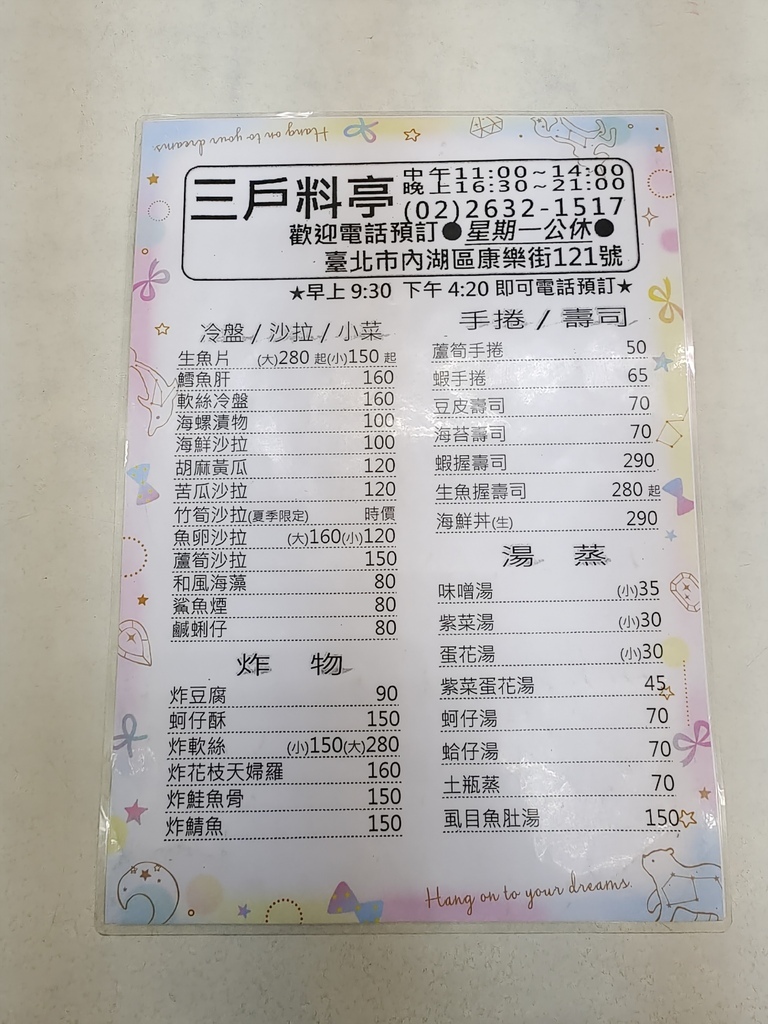 Hang on to your dreams.
三戶料亭
中午11:00~14:00
晚上16:30~21:00
(02)2632-1517
歡迎電話預訂●星期一公休●
臺北市內湖區康樂街121號
★早上 9:30 下午 4:20 即可電話預訂★
冷盤/沙拉/小菜
生魚片 (大)280 起(小)150 起
鱈魚肝 160
軟絲冷盤 160
海螺漬物 100
海鮮沙拉 100
胡麻黃瓜 120
苦瓜沙拉 120
竹筍沙拉(夏季限定) 時價
魚卵沙拉 (大)160(小)120
蘆筍沙拉 150
和風海藻 80
鯊魚煙 80
鹹蜊仔 80
炸 物
炸豆腐 90
蚵仔酥 150
炸軟絲 (小)150(大)280
炸花枝天婦羅 160
炸鮭魚骨 150
炸鯖魚 150
手捲/壽司
蘆筍手捲 50
蝦手捲 65
豆皮壽司 70
海苔壽司 70
蝦握壽司 290
生魚握壽司 280 起
海鮮丼(生) 290
湯 蒸
味噌湯 (小)35
紫菜湯 (小)30
蛋花湯 (小)30
紫菜蛋花湯 45
蚵仔湯 70
蛤仔湯 70
土瓶蒸 70
虱目魚肚湯 150
Hang on to your dreams.